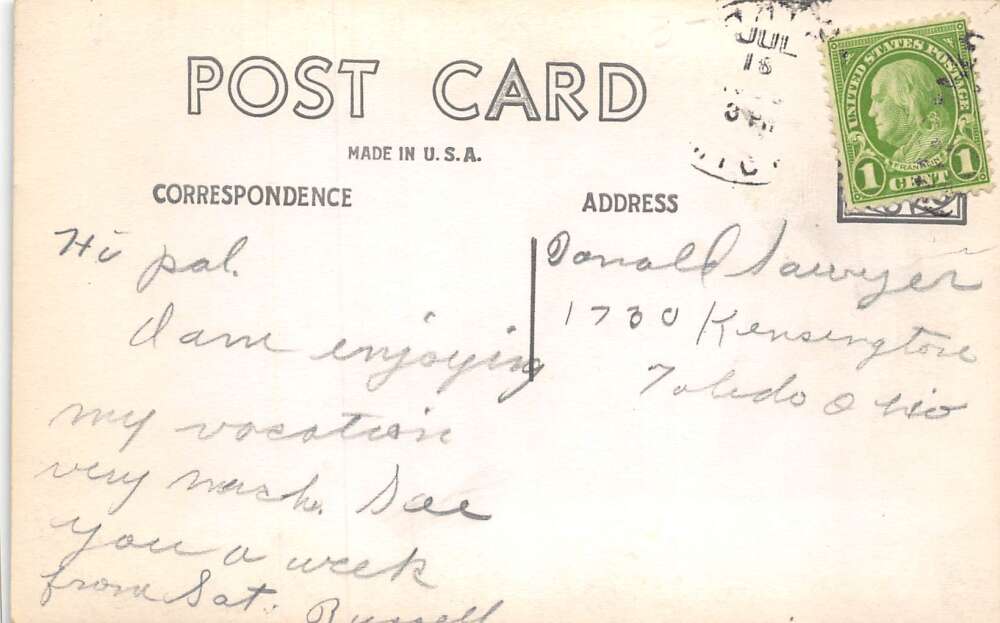 POST CARD
MADE IN U.S.A.
CORRESPONDENCE
ADDRESS
JUL
18
3 PM
MICH
UNITED STATES POSTAGE
FRANKLIN
1 CENT 1
Hi pal.
I am enjoying
my vacation
very much. See
you a week
from Sat. Russell
Donald Sawyer
1730 Kensington
Toledo Ohio